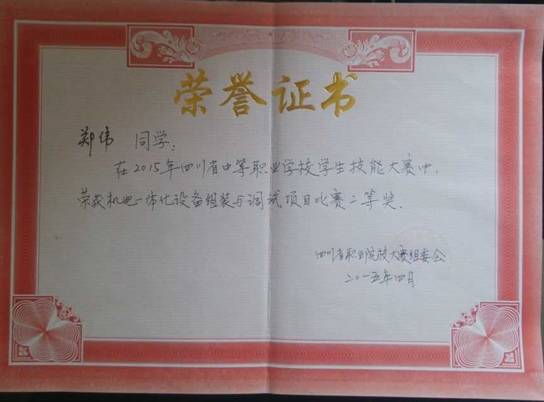 荣誉证书
郑伟 同学:
在2015年四川省中等职业学校学生技能大赛中,
荣获机电一体化设备组装与调试项目比赛二等奖.
四川省职业院校大赛组委会
二〇一五年四月